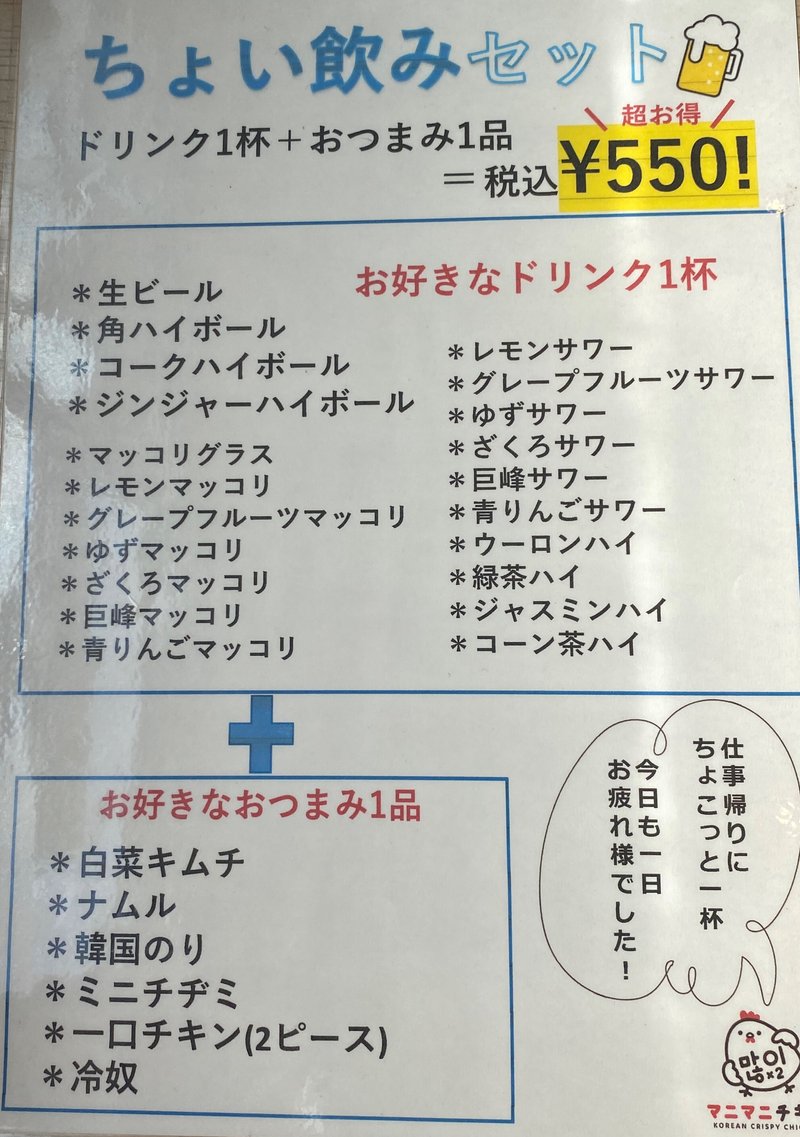 ちょい飲みセット
ドリンク1杯＋おつまみ1品
＼超お得／
＝税込¥550!
お好きなドリンク1杯
＊生ビール
＊角ハイボール
＊コークハイボール
＊ジンジャーハイボール
＊マッコリグラス
＊レモンマッコリ
＊グレープフルーツマッコリ
＊ゆずマッコリ
＊ざくろマッコリ
＊巨峰マッコリ
＊青りんごマッコリ
＊レモンサワー
＊グレープフルーツサワー
＊ゆずサワー
＊ざくろサワー
＊巨峰サワー
＊青りんごサワー
＊ウーロンハイ
＊緑茶ハイ
＊ジャスミンハイ
＊コーン茶ハイ
お好きなおつまみ1品
＊白菜キムチ
＊ナムル
＊韓国のり
＊ミニチヂミ
＊一口チキン(2ピース)
＊冷奴
仕事帰りに
ちょこっと一杯
今日も一日
お疲れ様でした！
많이
×2
マニマニチキ
KOREAN CRISPY CHI